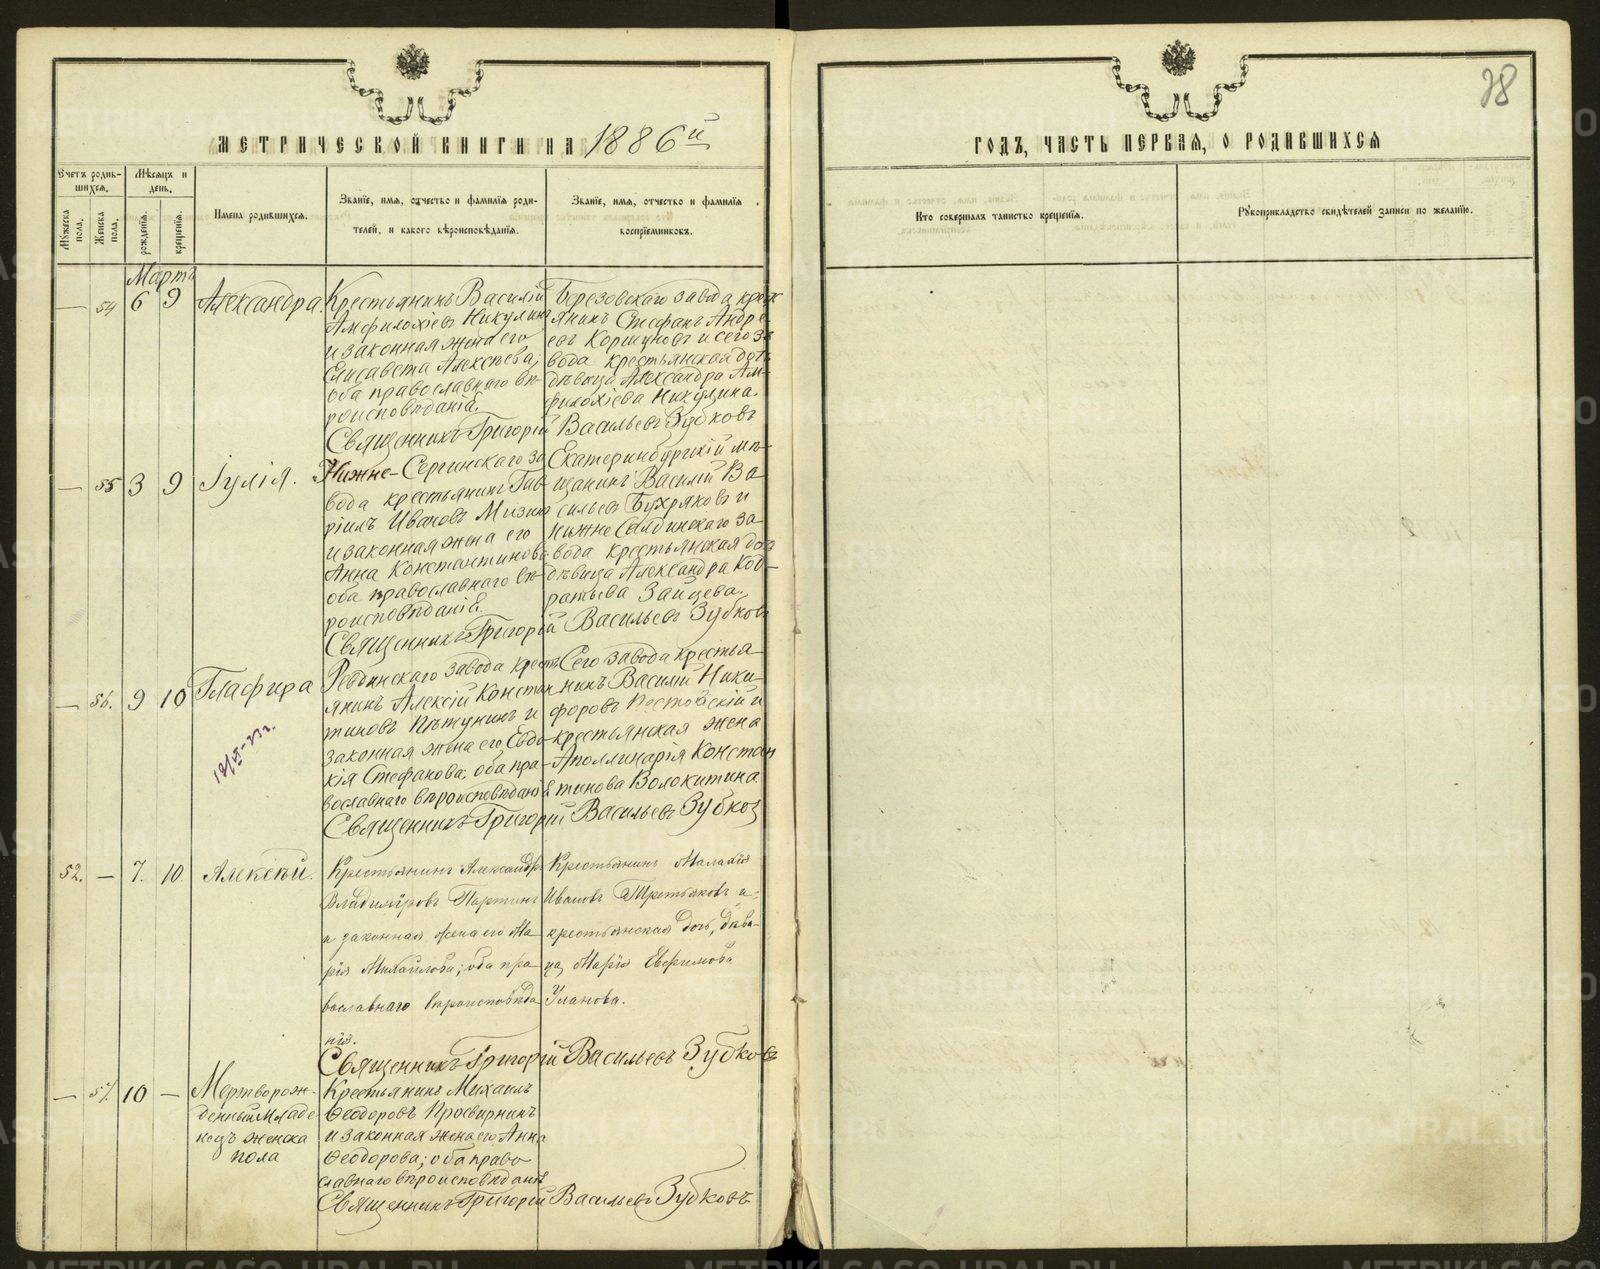 МЕТРИЧЕСКОЙ КНИГИ НА 1886й
ГОДЪ, ЧАСТЬ ПЕРВАЯ, О РОДИВШИХСЯ
Счетъ родившихся.
Мужеска пола.
Женска пола.
Мѣсяцъ и день.
рожденія.
крещенія.
Имена родившихся.
Званіе, имя, отчество и фамилія роди-
телей, и какого вѣроисповѣданія.
Званіе, имя, отчество и фамилія
воспріемниковъ.
Кто совершалъ таинство крещенія.
Рукоприкладство свидѣтелей записи по желанію.
Мартъ
— 54 6 9 Александра.
Крестьянинъ Василій
Амфилохіевъ Никулинъ
и законная жена его
Елисавета Алексѣева;
оба православнаго вѣ-
роисповѣданія.
Березовскаго завода крест
янинъ Стефанъ Андре-
евъ Коршуновъ и сего за
вода крестьянская дочь
дѣвица Александра Ам-
филохіева Никулина.
Священникъ Григорій Васильевъ Зубковъ
— 55 3 9 Іулія.
Нижне-Сергинскаго за
вода крестьянинъ Гав-
ріилъ Ивановъ Мизин
и законная жена его
Анна Константинова
оба православнаго вѣ-
роисповѣданія.
Екатеринбургскій мѣ-
щанинъ Василій Ва-
сильевъ Бухряковъ и
Нижне Салдинскаго за-
вода крестьянская доч
дѣвица Александра Код-
ратьева Зайцева.
Священникъ Григорій Васильевъ Зубковъ
— 56. 9 10 Глафира
Ревдинскаго завода крест
янинъ Алексій Констан
тиновъ Пѣтунинъ и
законная жена его Евдо-
кія Стефанова; оба пра-
вославнаго вѣроисповѣданія
Сего завода крестья-
нинъ Василій Ники-
форовъ Пестовскій и
крестьянская жена
Аполлинарія Констан
тинова Волокитина
Священникъ Григорій Васильевъ Зубков
52. — 7. 10. Алексѣй.
Крестьянинъ Александръ
Владиміровъ Партинъ
и законная жена его Ма-
рія Михайлова; оба пра-
вославнаго вѣроисповѣда
нія.
Крестьянинъ Малахія
Ивановъ Третьяковъ и
крестьянская дочь, дѣви-
ца, Марія Евфимова
Уланова.
Священникъ Григорій Васильевъ Зубковъ
— 57. 10 — Мертворож-
денный младе
нецъ женска
пола
Крестьянинъ Михаилъ
Ѳеодоровъ Просвирнинъ
и законная жена его Анна
Ѳеодорова; оба право
славнаго вѣроисповѣданія
Священникъ Григорій Васильевъ Зубковъ
METRIKI.GASO-URAL.RU